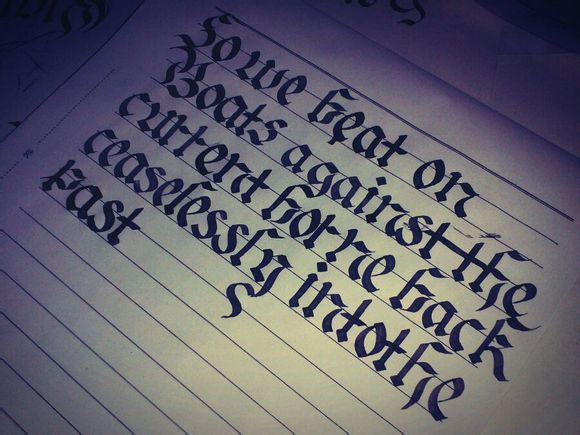 So we beat on
Boats against the
current borne back
ceaselessly into the
past